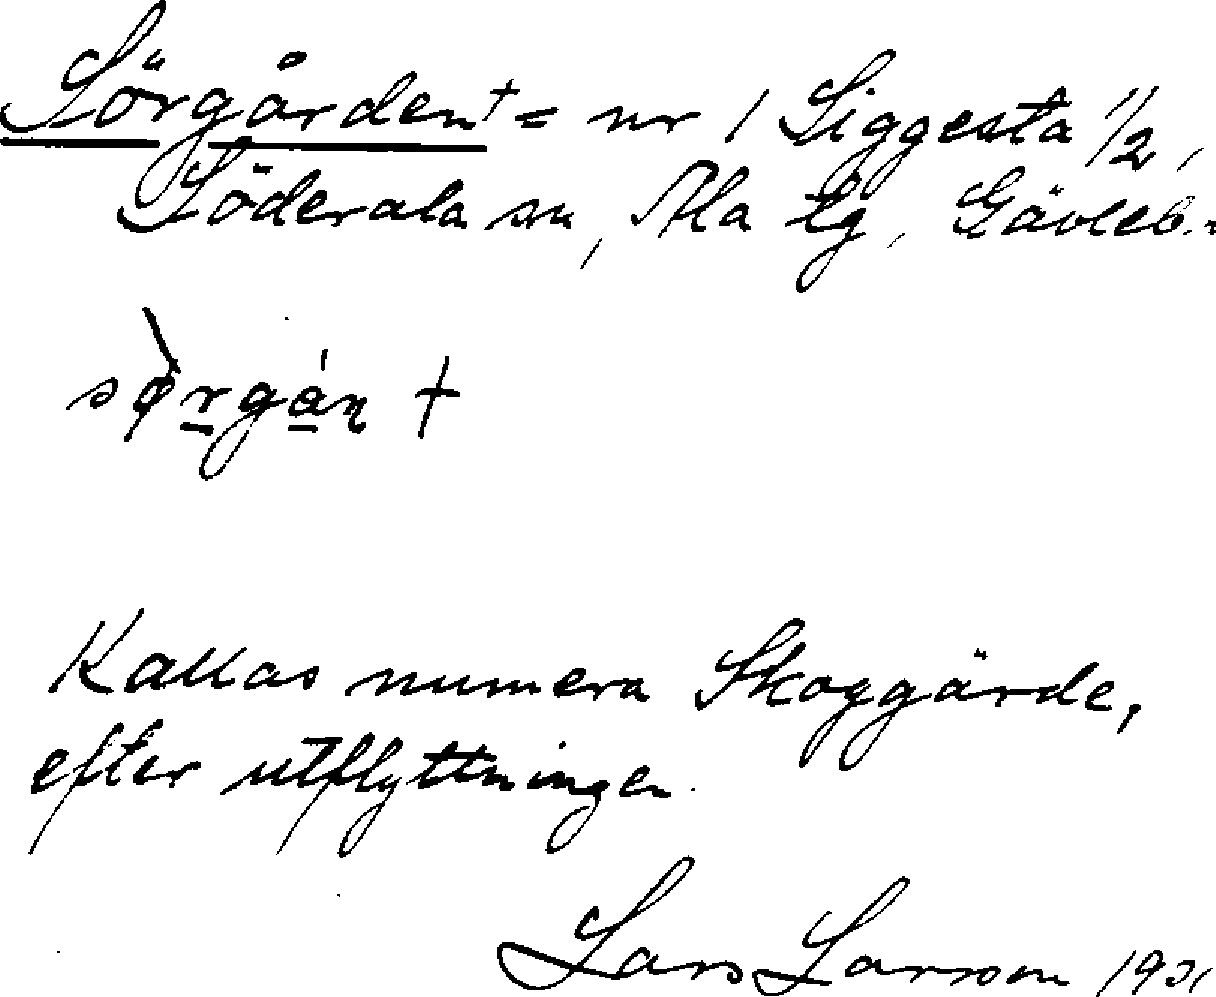 Sörgården† = nr 1 Siggesta 1/2,
Söderala sn, Ala tg, Gävleb.
sø̀rgán †
Kallas numera Skoggärde,
efter utflyttningen.
Lars Larsson